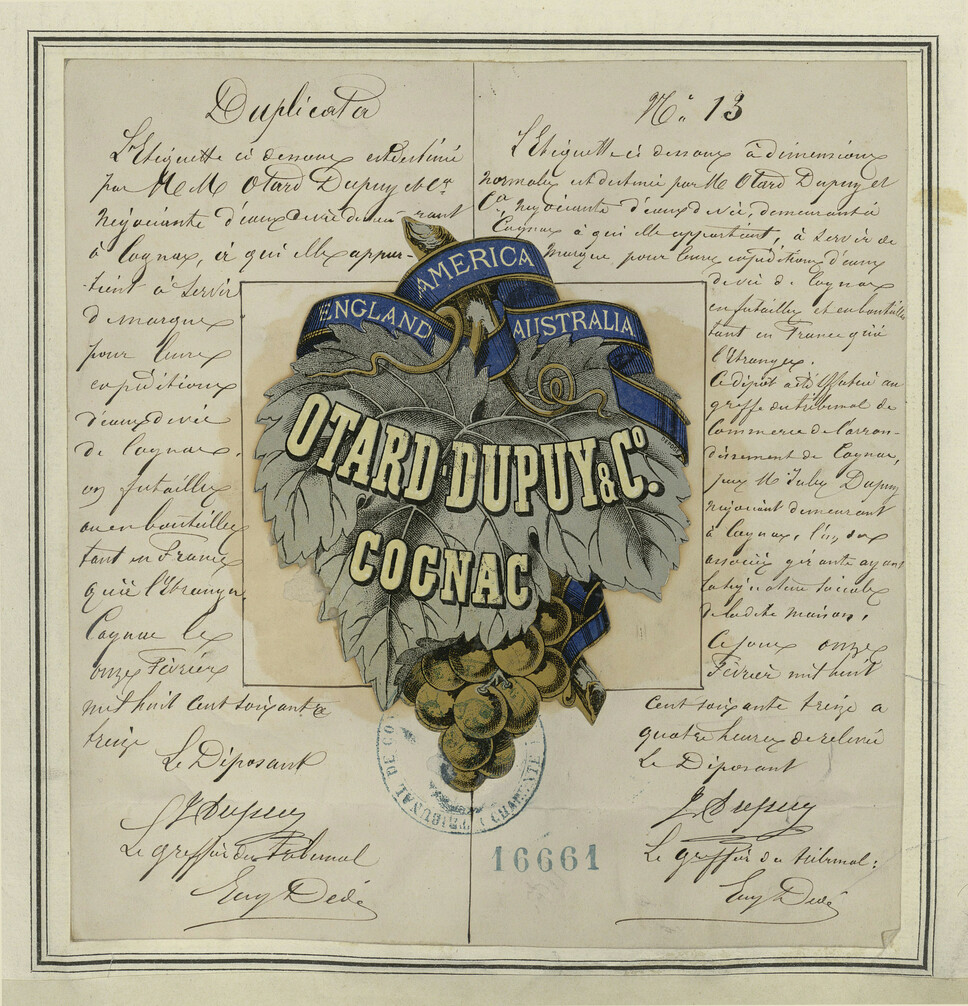 Duplicata
L'Etiquette ci dessous est destinée
par MM Otard Dupuy et Cie
Négociants d'eaux de vie demeurant
à Cognac, et qui elle appar-
-tient à servir
de marque
pour leurs
expéditions
d'eaux de vie
de Cognac,
en futailles
ou en bouteilles
tant en France
qu'à l'Etranger.
Cognac le
onze Février
mil huit cent soixante
treize
Le Déposant
J Dupuy
Le greffier du Tribunal
Eug Dedé
No 13
L'Etiquette ci dessous à dimensions
normales est destinée par MM Otard Dupuy et
Co, négociants d'eaux de vie, demeurant à
Cognac à qui elle appartient, à servir de
marque pour leurs expéditions d'eaux
de vie de Cognac
en futailles et en bouteilles
tant en France qu'à
l'Etranger.
Ce dépôt a été effectué au
greffe du tribunal de
Commerce de l'arron-
dissement de Cognac,
par M. Jules Dupuy
négociant demeurant
à Cognac, l'un des
associés gérants ayant
la signature sociale
de la dite maison.
Ce jour onze
Février mil huit
cent soixante treize à
quatre heures de relevée
Le Déposant
J. Dupuy
Le greffier du tribunal:
Eug Dedé
AMERICA
ENGLAND
AUSTRALIA
OTARD-DUPUY & Co.
COGNAC
TRIBUNAL DE CO
(CHARENTE)
16661